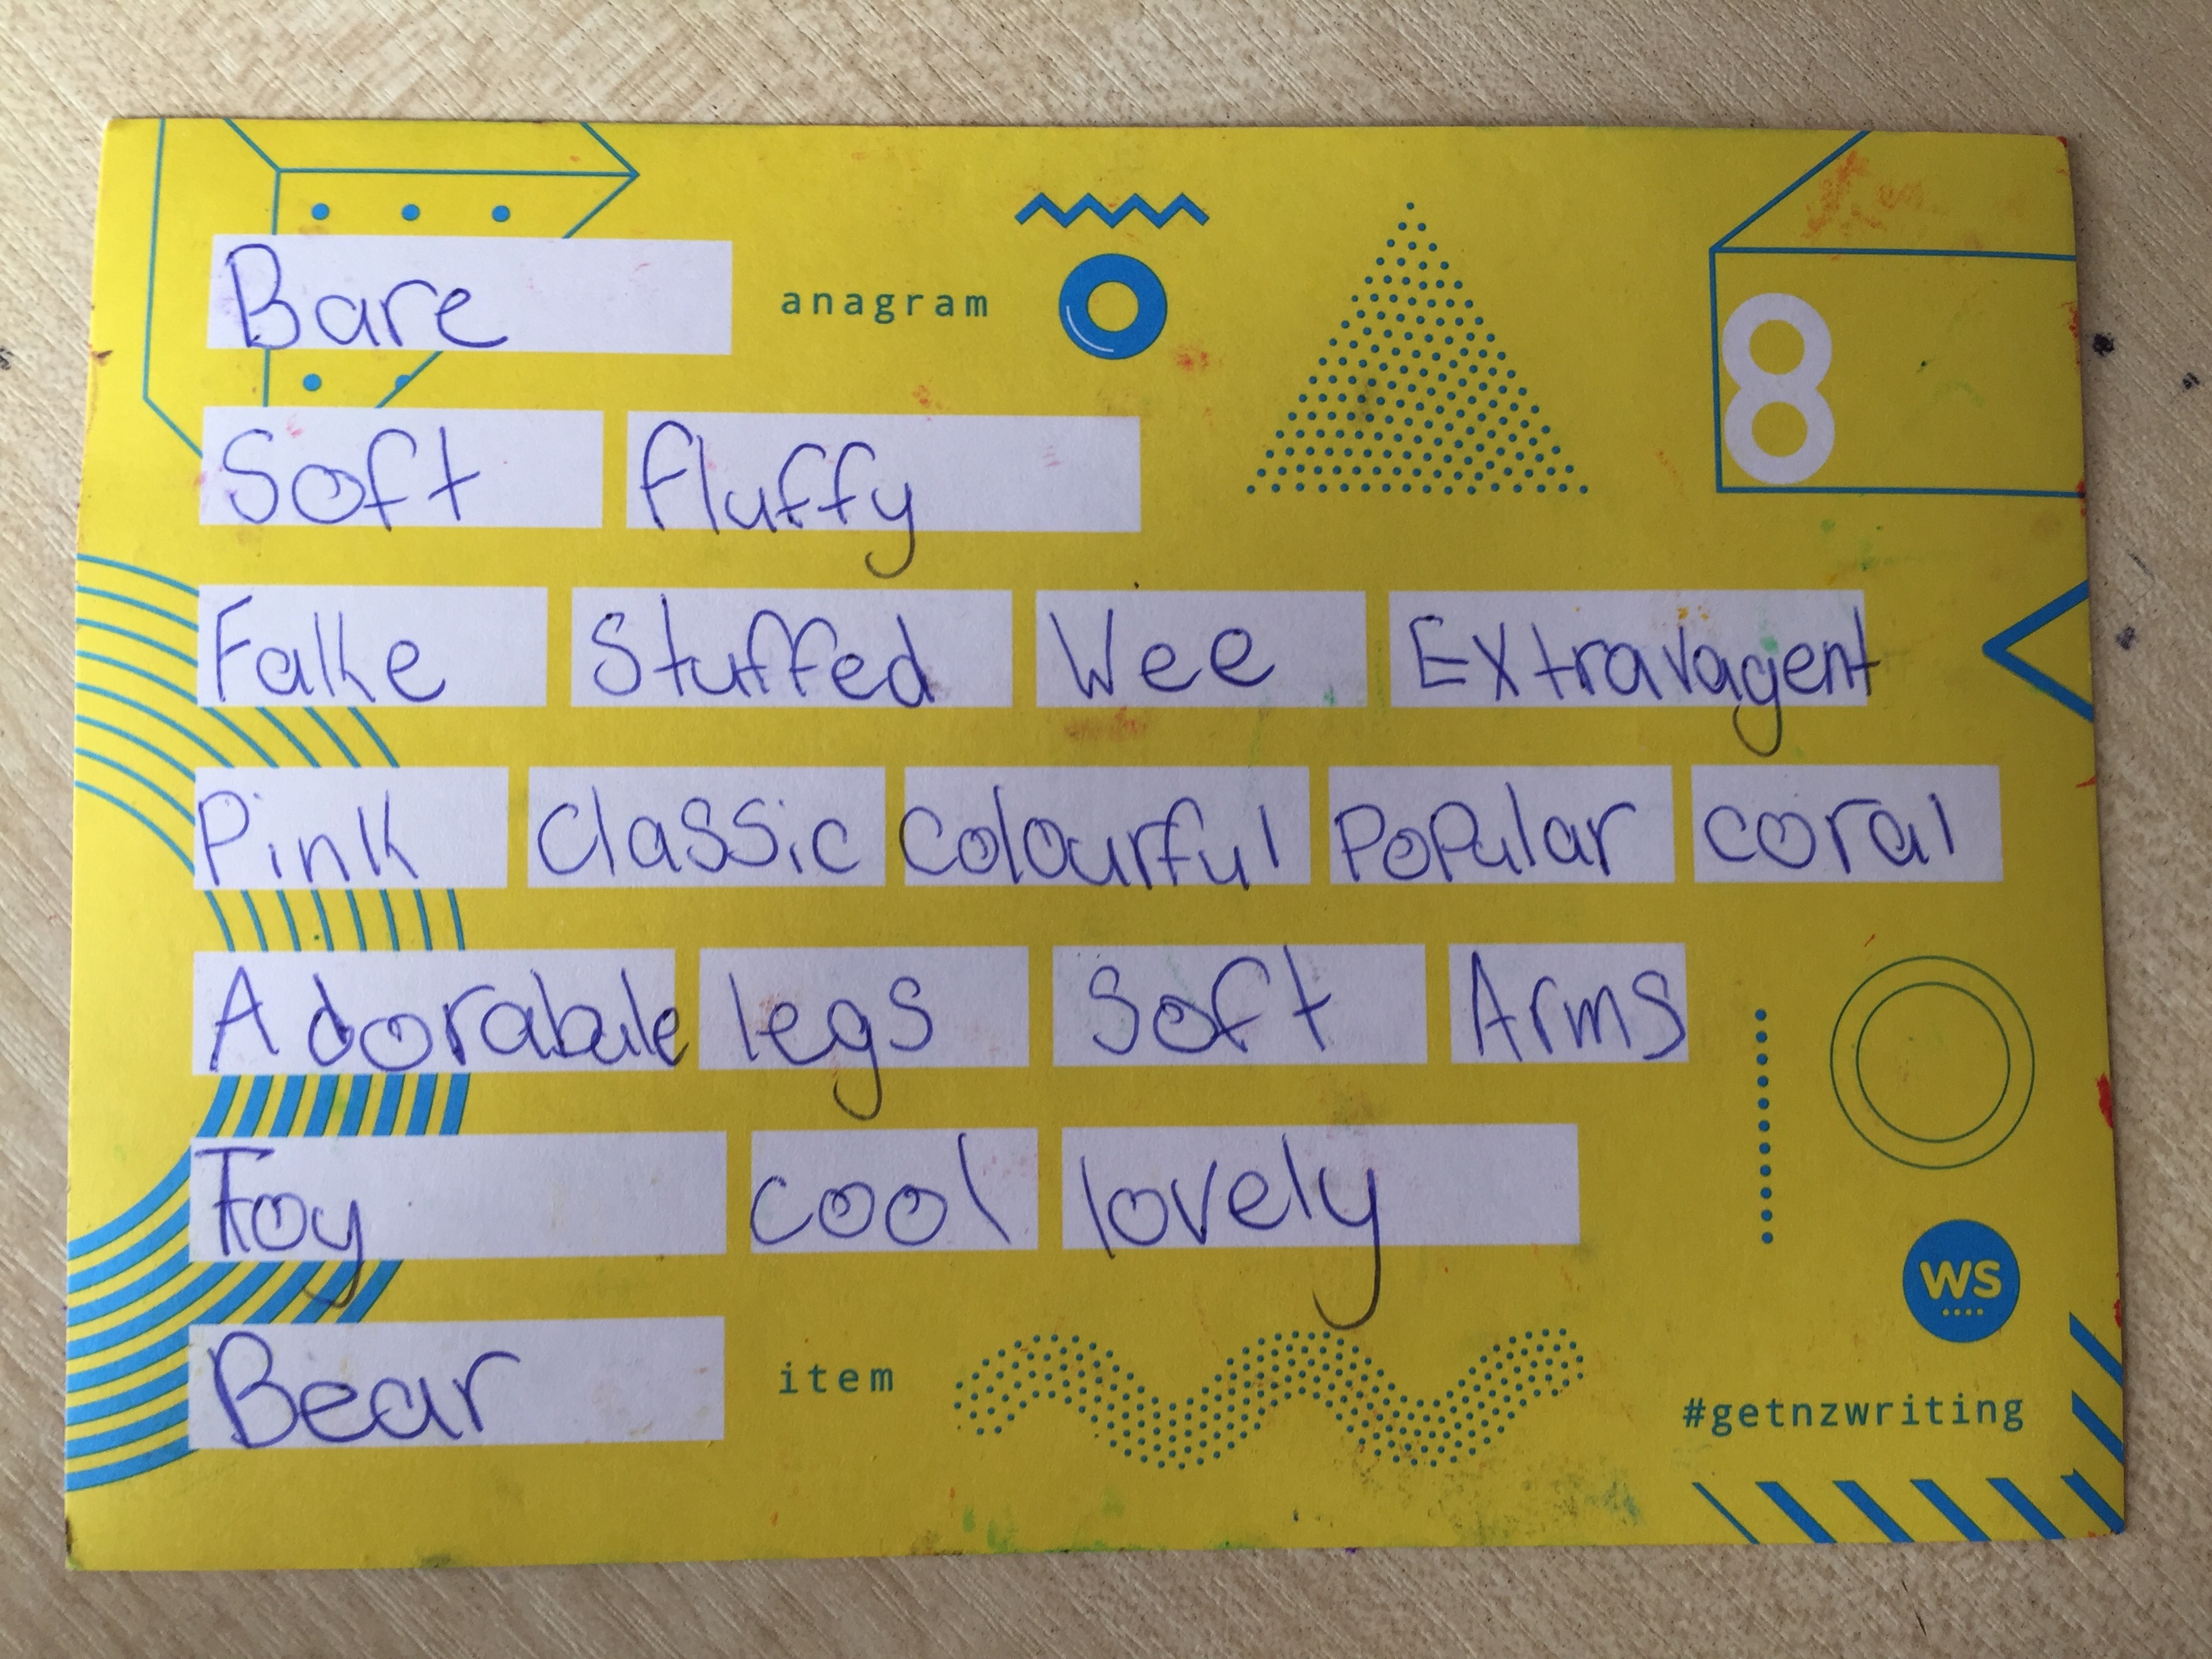 Bare anagram
8
Soft fluffy
Fake Stuffed Wee Extravagent
Pink Classic Colourful Popular coral
Adorabule legs Soft Arms
Toy cool lovely
WS
Bear item
#getnzwriting